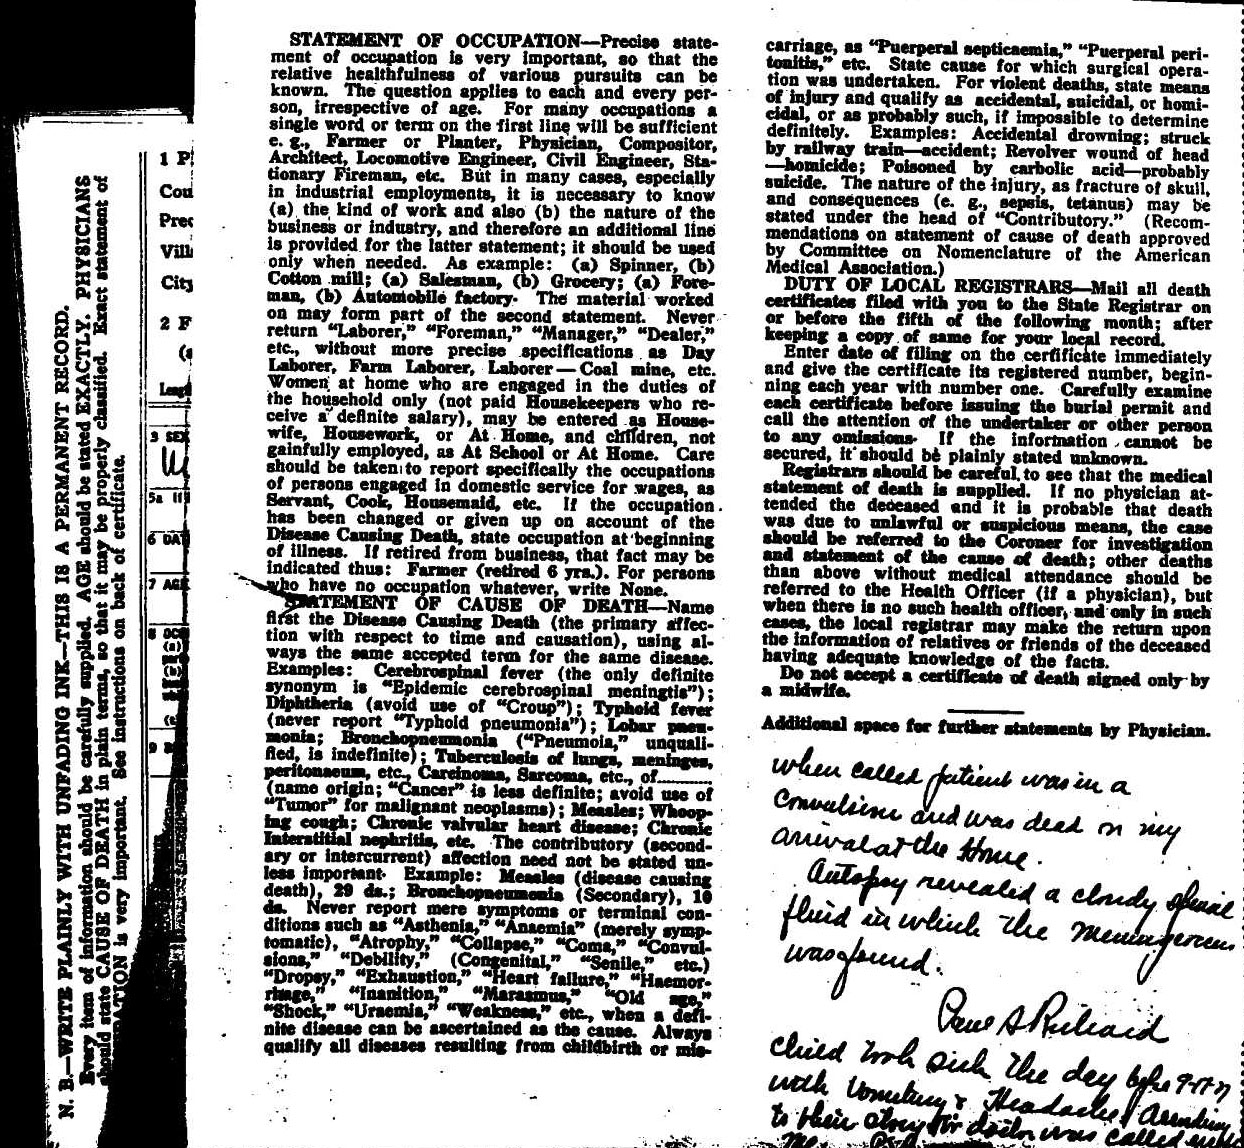 N. B.—WRITE PLAINLY WITH UNFADING INK—THIS IS A PERMANENT RECORD.
Every item of information should be carefully supplied. AGE should be stated EXACTLY. PHYSICIANS
should state CAUSE OF DEATH in plain terms, so that it may be properly classified. Exact statement of
is very important. See instructions on back of certificate.
1 P
Cou
Prec
Vill
City
2 F
Leng
3 SEX
5a If
6 DA
7 AGE
8 OCC
9 B
STATEMENT OF OCCUPATION—Precise state-
ment of occupation is very important, so that the
relative healthfulness of various pursuits can be
known. The question applies to each and every per-
son, irrespective of age. For many occupations a
single word or term on the first line will be sufficient
e. g., Farmer or Planter, Physician, Compositor,
Architect, Locomotive Engineer, Civil Engineer, Sta-
tionary Fireman, etc. But in many cases, especially
in industrial employments, it is necessary to know
(a) the kind of work and also (b) the nature of the
business or industry, and therefore an additional line
is provided for the latter statement; it should be used
only when needed. As example: (a) Spinner, (b)
Cotton mill; (a) Salesman, (b) Grocery; (a) Fore-
man, (b) Automobile factory. The material worked
on may form part of the second statement. Never
return "Laborer," "Foreman," "Manager," "Dealer,"
etc., without more precise specifications as Day
Laborer, Farm Laborer, Laborer—Coal mine, etc.
Women at home who are engaged in the duties of
the household only (not paid Housekeepers who re-
ceive a definite salary), may be entered as House-
wife, Housework, or At Home, and children, not
gainfully employed, as At School or At Home. Care
should be taken to report specifically the occupations
of persons engaged in domestic service for wages, as
Servant, Cook, Housemaid, etc. If the occupation
has been changed or given up on account of the
Disease Causing Death, state occupation at beginning
of illness. If retired from business, that fact may be
indicated thus: Farmer (retired 6 yrs.). For persons
who have no occupation whatever, write None.
STATEMENT OF CAUSE OF DEATH—Name
first the Disease Causing Death (the primary affec-
tion with respect to time and causation), using al-
ways the same accepted term for the same disease.
Examples: Cerebrospinal fever (the only definite
synonym is "Epidemic cerebrospinal meningtis");
Diphtheria (avoid use of "Croup"); Typhoid fever
(never report "Typhoid pneumonia"); Lobar pneu-
monia; Bronchopneumonia ("Pneumoia," unquali-
fied, is indefinite); Tuberculosis of lungs, meninges,
peritonaeum, etc., Carcinoma, Sarcoma, etc., of..........
(name origin; "Cancer" is less definite; avoid use of
"Tumor" for malignant neoplasms); Measles; Whoop-
ing cough; Chronic valvular heart disease; Chronic
Interstitial nephritis, etc. The contributory (second-
ary or intercurrent) affection need not be stated un-
less important. Example: Measles (disease causing
death), 29 ds.; Bronchopneumonia (Secondary), 10
ds. Never report mere symptoms or terminal con-
ditions such as "Asthenia," "Anaemia" (merely symp-
tomatic), "Atrophy," "Collapse," "Coma," "Convul-
sions," "Debility," (Congenital," "Senile," etc.)
"Dropsy," "Exhaustion," "Heart failure," "Haemor-
rhage," "Inanition," "Marasmus," "Old age,"
"Shock," "Uraemia," "Weakness," etc., when a defi-
nite disease can be ascertained as the cause. Always
qualify all diseases resulting from childbirth or mis-
carriage, as "Puerperal septicaemia," "Puerperal peri-
tonitis," etc. State cause for which surgical opera-
tion was undertaken. For violent deaths, state means
of injury and qualify as accidental, suicidal, or homi-
cidal, or as probably such, if impossible to determine
definitely. Examples: Accidental drowning; struck
by railway train—accident; Revolver wound of head
—homicide; Poisoned by carbolic acid—probably
suicide. The nature of the injury, as fracture of skull,
and consequences (e. g., sepsis, tetanus) may be
stated under the head of "Contributory." (Recom-
mendations on statement of cause of death approved
by Committee on Nomenclature of the American
Medical Association.)
DUTY OF LOCAL REGISTRARS—Mail all death
certificates filed with you to the State Registrar on
or before the fifth of the following month; after
keeping a copy of same for your local record.
Enter date of filing on the certificate immediately
and give the certificate its registered number, begin-
ning each year with number one. Carefully examine
each certificate before issuing the burial permit and
call the attention of the undertaker or other person
to any omissions. If the information cannot be
secured, it should be plainly stated unknown.
Registrars should be careful to see that the medical
statement of death is supplied. If no physician at-
tended the deceased and it is probable that death
was due to unlawful or suspicious means, the case
should be referred to the Coroner for investigation
and statement of the cause of death; other deaths
than above without medical attendance should be
referred to the Health Officer (if a physician), but
when there is no such health officer, and only in such
cases, the local registrar may make the return upon
the information of relatives or friends of the deceased
having adequate knowledge of the facts.
Do not accept a certificate of death signed only by
a midwife.
Additional space for further statements by Physician.
when called patient was in a
Convulsion and was dead on my
arrival at the Home.
Autopsy revealed a cloudy spinal
fluid in which the
was found.
Paul S Richard
Child took sick the day before 9-17-
with Vomiting & Headache According
to their story doctor was called